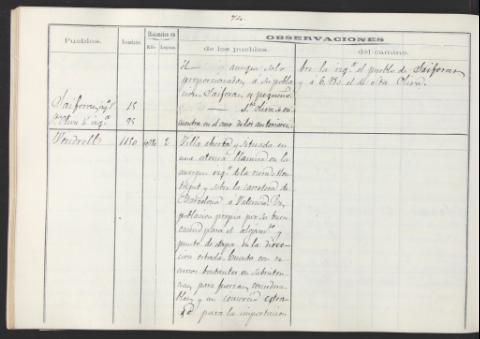 74.
Pueblos.
Vecinos.
Distancias en
Kils. Leguas.
OBSERVACIONES
de los pueblos.
del camino.
aunque solo
proporcionado, á su pobla
cion, Saiforas, es pequeño
Sta. Oliva se en
cuentra en el caso de los anteriores.
bre la izqa. el pueblo de Saiforas
y á 6. el de Sta. Oliva.
Saiforas, izqa. 15
Oliva é izqa. 95
Vendrell 1150 2
Villa abierta y situada en
una llanura en la
izqa. de la riera
y sobre la carretera de
Barcelona á Valencia. Es
poblacion propia por su buen
caserio para el alojamto. y
punto de etapa en la direc
cion citada. Cuenta con re
cursos bastantes en subsisten
cias, para fuerzas considera
bles, y un comercio
para la importacion